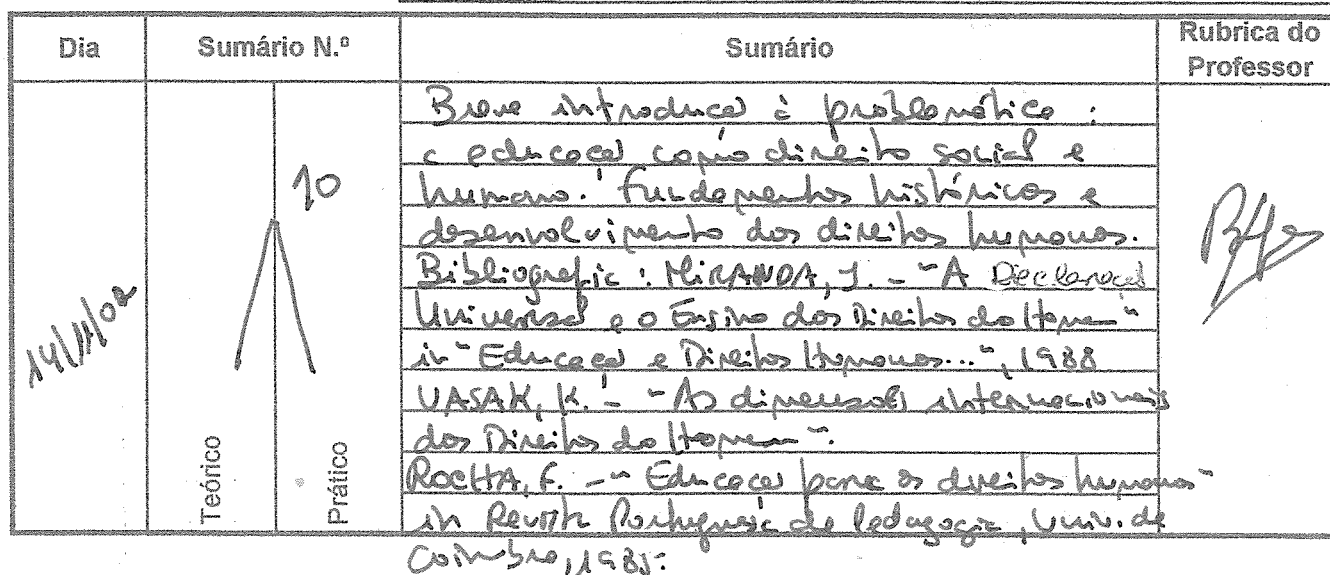 Dia Sumário N.º Sumário Rubrica do Professor
Breve introdução à problemática :
a educação como direito social e
humano. Fundamentos históricos e
desenvolvimento dos direitos humanos.
Bibliografia : MIRANDA, J. - "A Declaração
Universal e o Ensino dos Direitos do Homem"
in "Educação e Direitos Humanos...", 1988
VASAK, K. - "As dimensões internacionais
dos Direitos do Homem".
ROCHA, F. - "Educação para os direitos humanos"
in Revista Portuguesa de Pedagogia, Univ. de
Coimbra, 1985.
10
14/11/02
Teórico
Prático